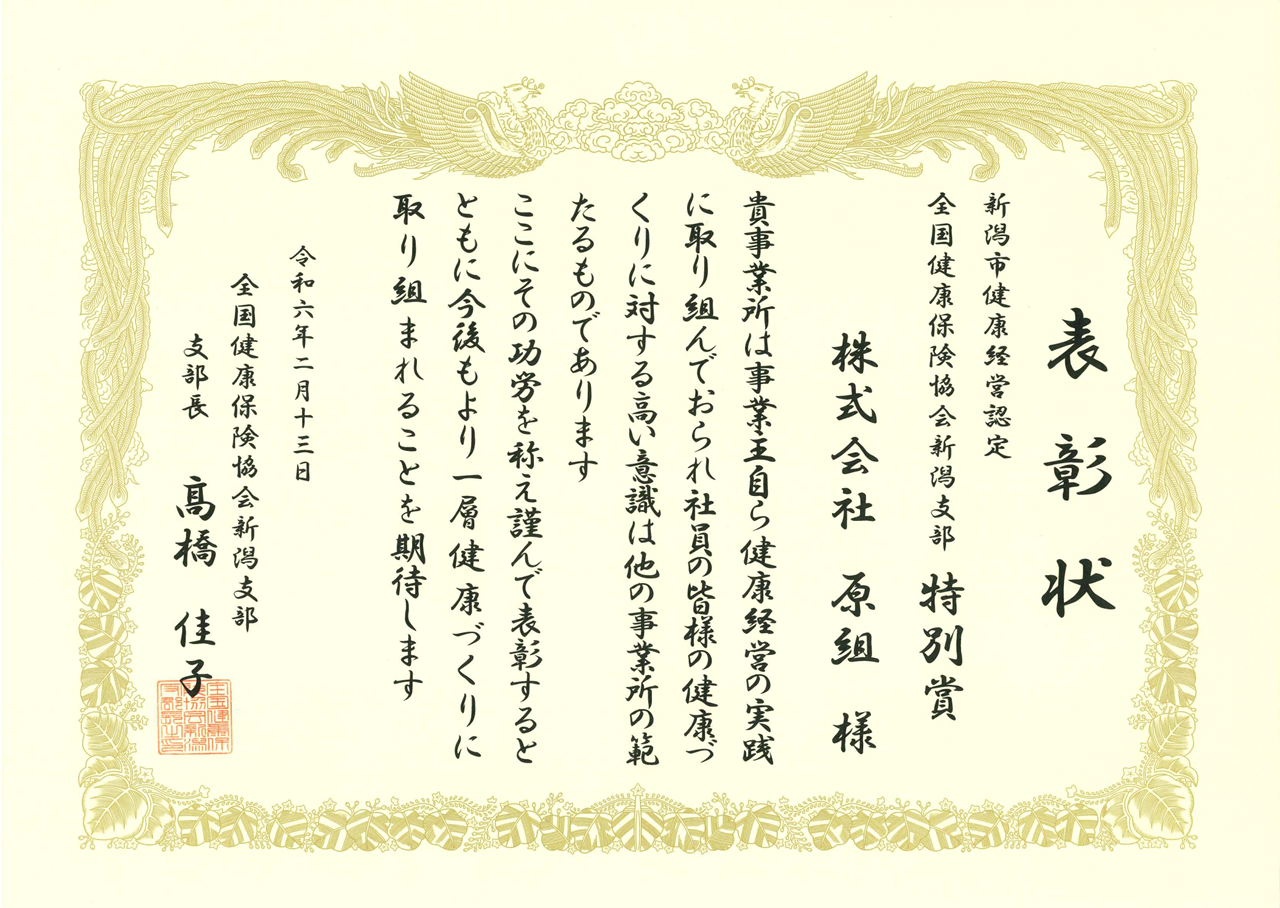 表彰状
新潟市健康経営認定
全国健康保険協会新潟支部 特別賞
株式会社 原組 様
貴事業所は事業主自ら健康経営の実践
に取り組んでおられ社員の皆様の健康づ
くりに対する高い意識は他の事業所の範
たるものであります
ここにその功労を称え謹んで表彰すると
ともに今後もより一層健康づくりに
取り組まれることを期待します
令和六年二月十三日
全国健康保険協会新潟支部
支部長 髙橋 佳子